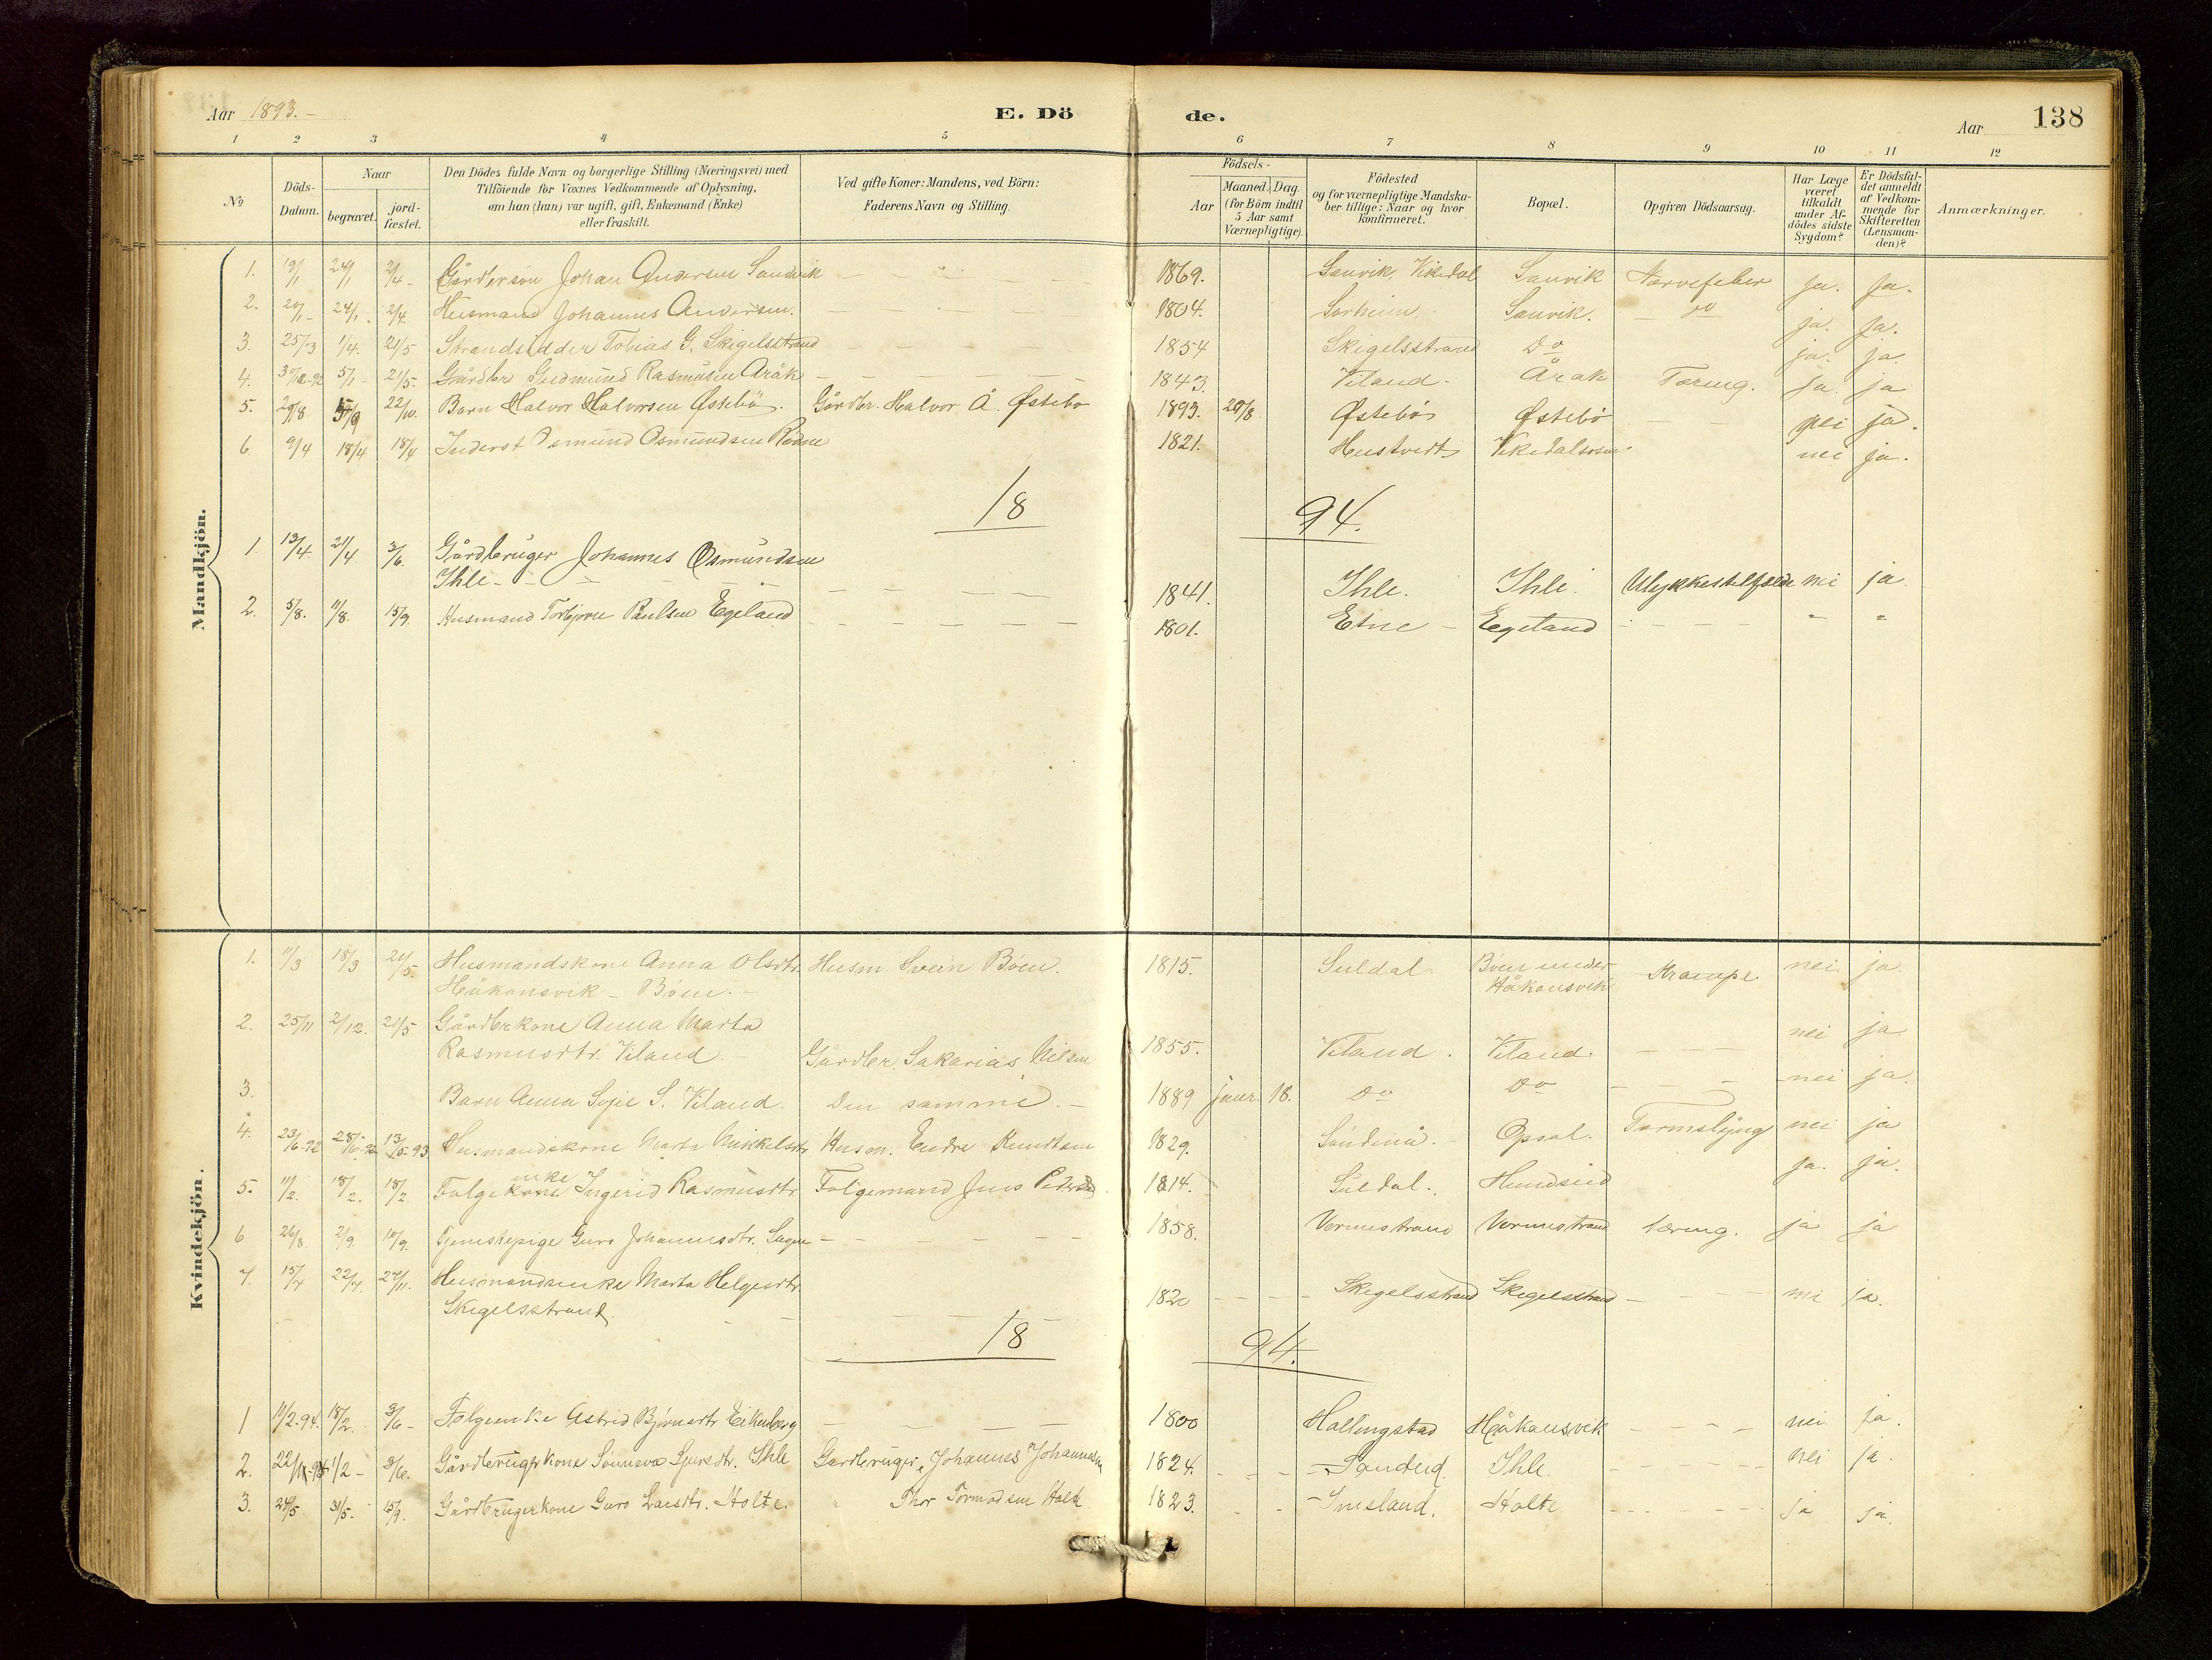 Aar 1893.-
E. Dö
de.
Aar
138
1 2 3 4 5 6 7 8 9 10 11 12
№
Döds-
Datum.
Naar
begravet.
jord-
fæstet.
Den Dödes fulde Navn og borgerlige Stilling (Næringsvei) med
Tilföiende for Voxnes Vedkommende af Oplysning,
om han (hun) var ugift, gift, Enkemand (Enke)
eller fraskilt.
Ved gifte Koner: Mandens, ved Börn:
Faderens Navn og Stilling.
Födsels-
Aar
Maaned. Dag.
(for Börn indtil
5 Aar samt
Værnepligtige)
Födested
og for værnepligtige Mandska-
ber tillige: Naar og hvor
konfirmeret.
Bopæl.
Opgiven Dödsaarsag.
Har Læge
været
tilkaldt
under Af-
dödes sidste
Sygdom?
Er Dödsfal-
det anmeldt
af Vedkom-
mende for
Skifteretten
(Lensman-
den)?
Anmærkninger.
Mandkjön.
1. 19/1 24/1 2/4 - Gårdbrsön Johan Andersen Sandvik 1869. Sanvik, Vikedal Sanvik Nervefeber ja. Ja.
2. 20/1 - 24/1. 2/4 Husmand Johannes Andersen. 1804. Sörheim. Sanvik. do ja. Ja.
3. 25/3 1/4. 21/5 Strandsidder Tobias G. Skigelsstrand 1854 Skigelsstrand Do ja. ja.
4. 30/12-92 5/1 - 21/5. Gårdbr Gudmund Rasmusen Aråk 1843. Viland. Årak Tæring. ja. ja
5. 29/8. 5/9 22/10. Barn Halvor Halvorsen Østebö. Gårdbr. Halvor Å. Østebö 1893. 20/8. Østebö Østebö nei ja.
6. 9/4 18/4 18/4 Inderst Osmund Osmundsen Rødne 1821. Hustvedt Vikedalsosen nei ja.
18 94.
1. 13/4. 21/4 3/6. Gårdbruger Johannes Osmundsen
Ihle - 1841. Ihle. Ihle. Ulykkestilfælde nei ja.
2. 5/8. 11/8. 15/9. Husmand Torbjörn Paulsen Egeland 1801. Etne - Egeland
Kvindekjön.
1. 11/3 18/3 21/5. Husmandskone Anna Olsdtr. Husm Svein Böen. 1815. Suldal Böen under Krampe nei. ja.
Håkonsvik - Böen. - Håkonsvik
2. 25/11 2/12. 21/5 Gårdbrkone Anna Marta nei ja
Rasmusdtr. Viland. Gårdbr. Sakarias Nilsen 1855. Viland. Viland.
3. Barn Anna Sofie S. Viland. Den samme. - 1889 januar. 18. Do Do nei ja.
4. 23/6-92 28/6-92 13/5-93 Husmandskone Marta Mikkelsdtr Husm. Endre Knudtsen 1829. Opsal. Tarmslyng nei ja
5. 11/2. 18/2. 18/2 Folgekone enke Ingerid Rasmusdtr. Folgemand Jens Peders 1814. Suldal. Hundseid ja. ja.
6 26/8. 2/9. 10/9. Tjenestepige Guro Johannesdtr. 1858. Vormestrand Vormestrand tæring. ja ja
7. 15/7 22/7. 24/11. Husmandsenke Marta Helgesdtr.
Skegelsstrand. 1820 Skegelsstrand Skegelsstrand nei ja.
18 94.
1 11/2-94. 18/2. 3/6 - Folgeenke Astrid Bjørnsdtr Eikeberg 1800 Hallingstad Håkonsvik nei. ja.
2. 1/2 - 3/6. Gårdbrugerkone Sönneva Sjursdtr. Ihle Gardbruger, Johannes Johannesen 1824. Sandeid. Ihle. nei ja.
3. 24/5 31/5. 15/9. Gårdbrugerkone Guro Larsdtr. Holte. Thor Tormodsen Holte 1823. Imsland. Holte ja ja.